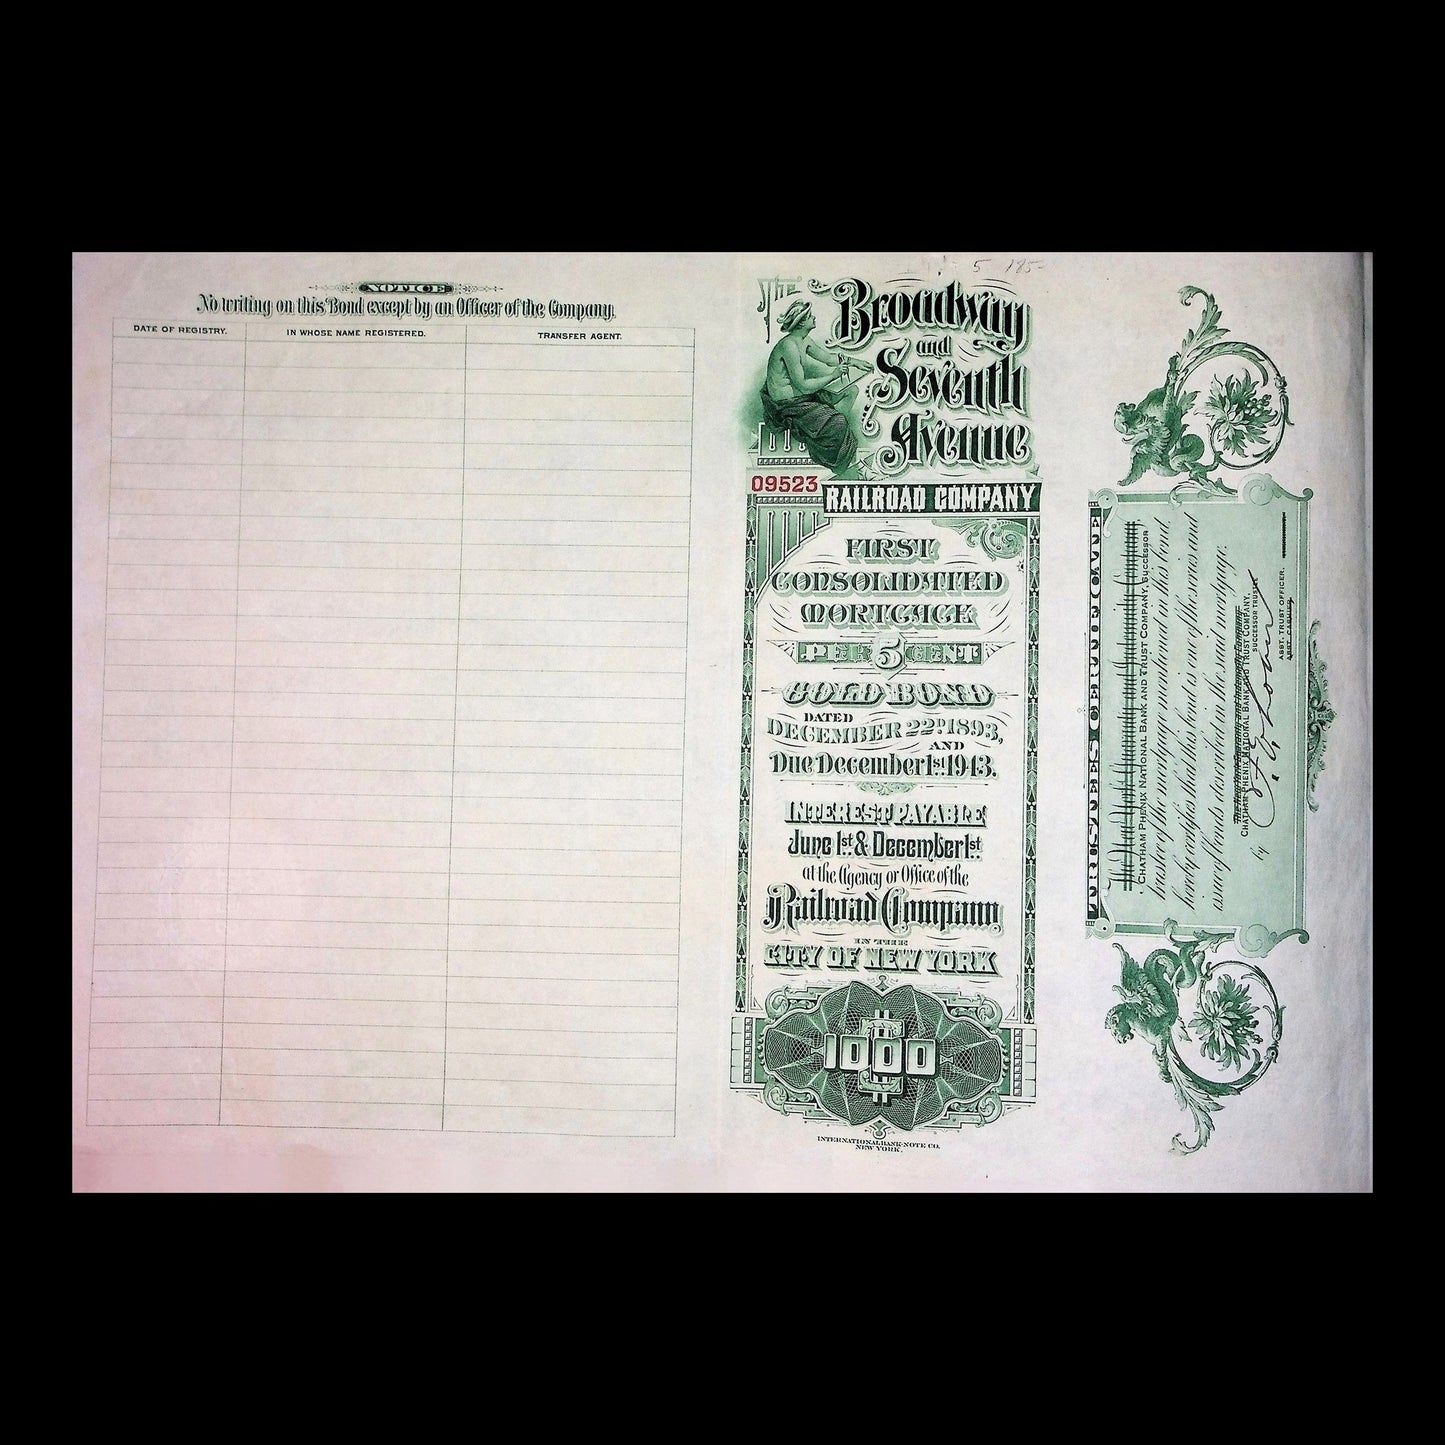 NOTICE
No writing on this Bond except by an Officer of the Company.
DATE OF REGISTRY.
IN WHOSE NAME REGISTERED.
TRANSFER AGENT.
5 195-
The
Broadway
and
Seventh
Avenue
09523
RAILROAD COMPANY
FIRST
CONSOLIDATED
MORTGAGE
PER 5 CENT
GOLD BOND
DATED
DECEMBER 22D. 1893,
AND
Due December 1st. 1943.
INTEREST PAYABLE
June 1st. & December 1st.
at the Agency or Office of the
Railroad Company
IN THE
CITY OF NEW YORK
$
1000
INTERNATIONAL BANK-NOTE CO.
NEW YORK.
TRUSTEES CERTIFICATE
The New York Guaranty and Indemnity Company,
CHATHAM PHENIX NATIONAL BANK AND TRUST COMPANY, SUCCESSOR
trustee of the mortgage mentioned in this bond,
hereby certifies that this bond is one of the series and
issue of bonds described in the said mortgage.
The New York Guaranty and Indemnity Company,
CHATHAM PHENIX NATIONAL BANK AND TRUST COMPANY,
SUCCESSOR TRUSTEE
by
ASST. TRUST OFFICER.
ASST. CASHIER